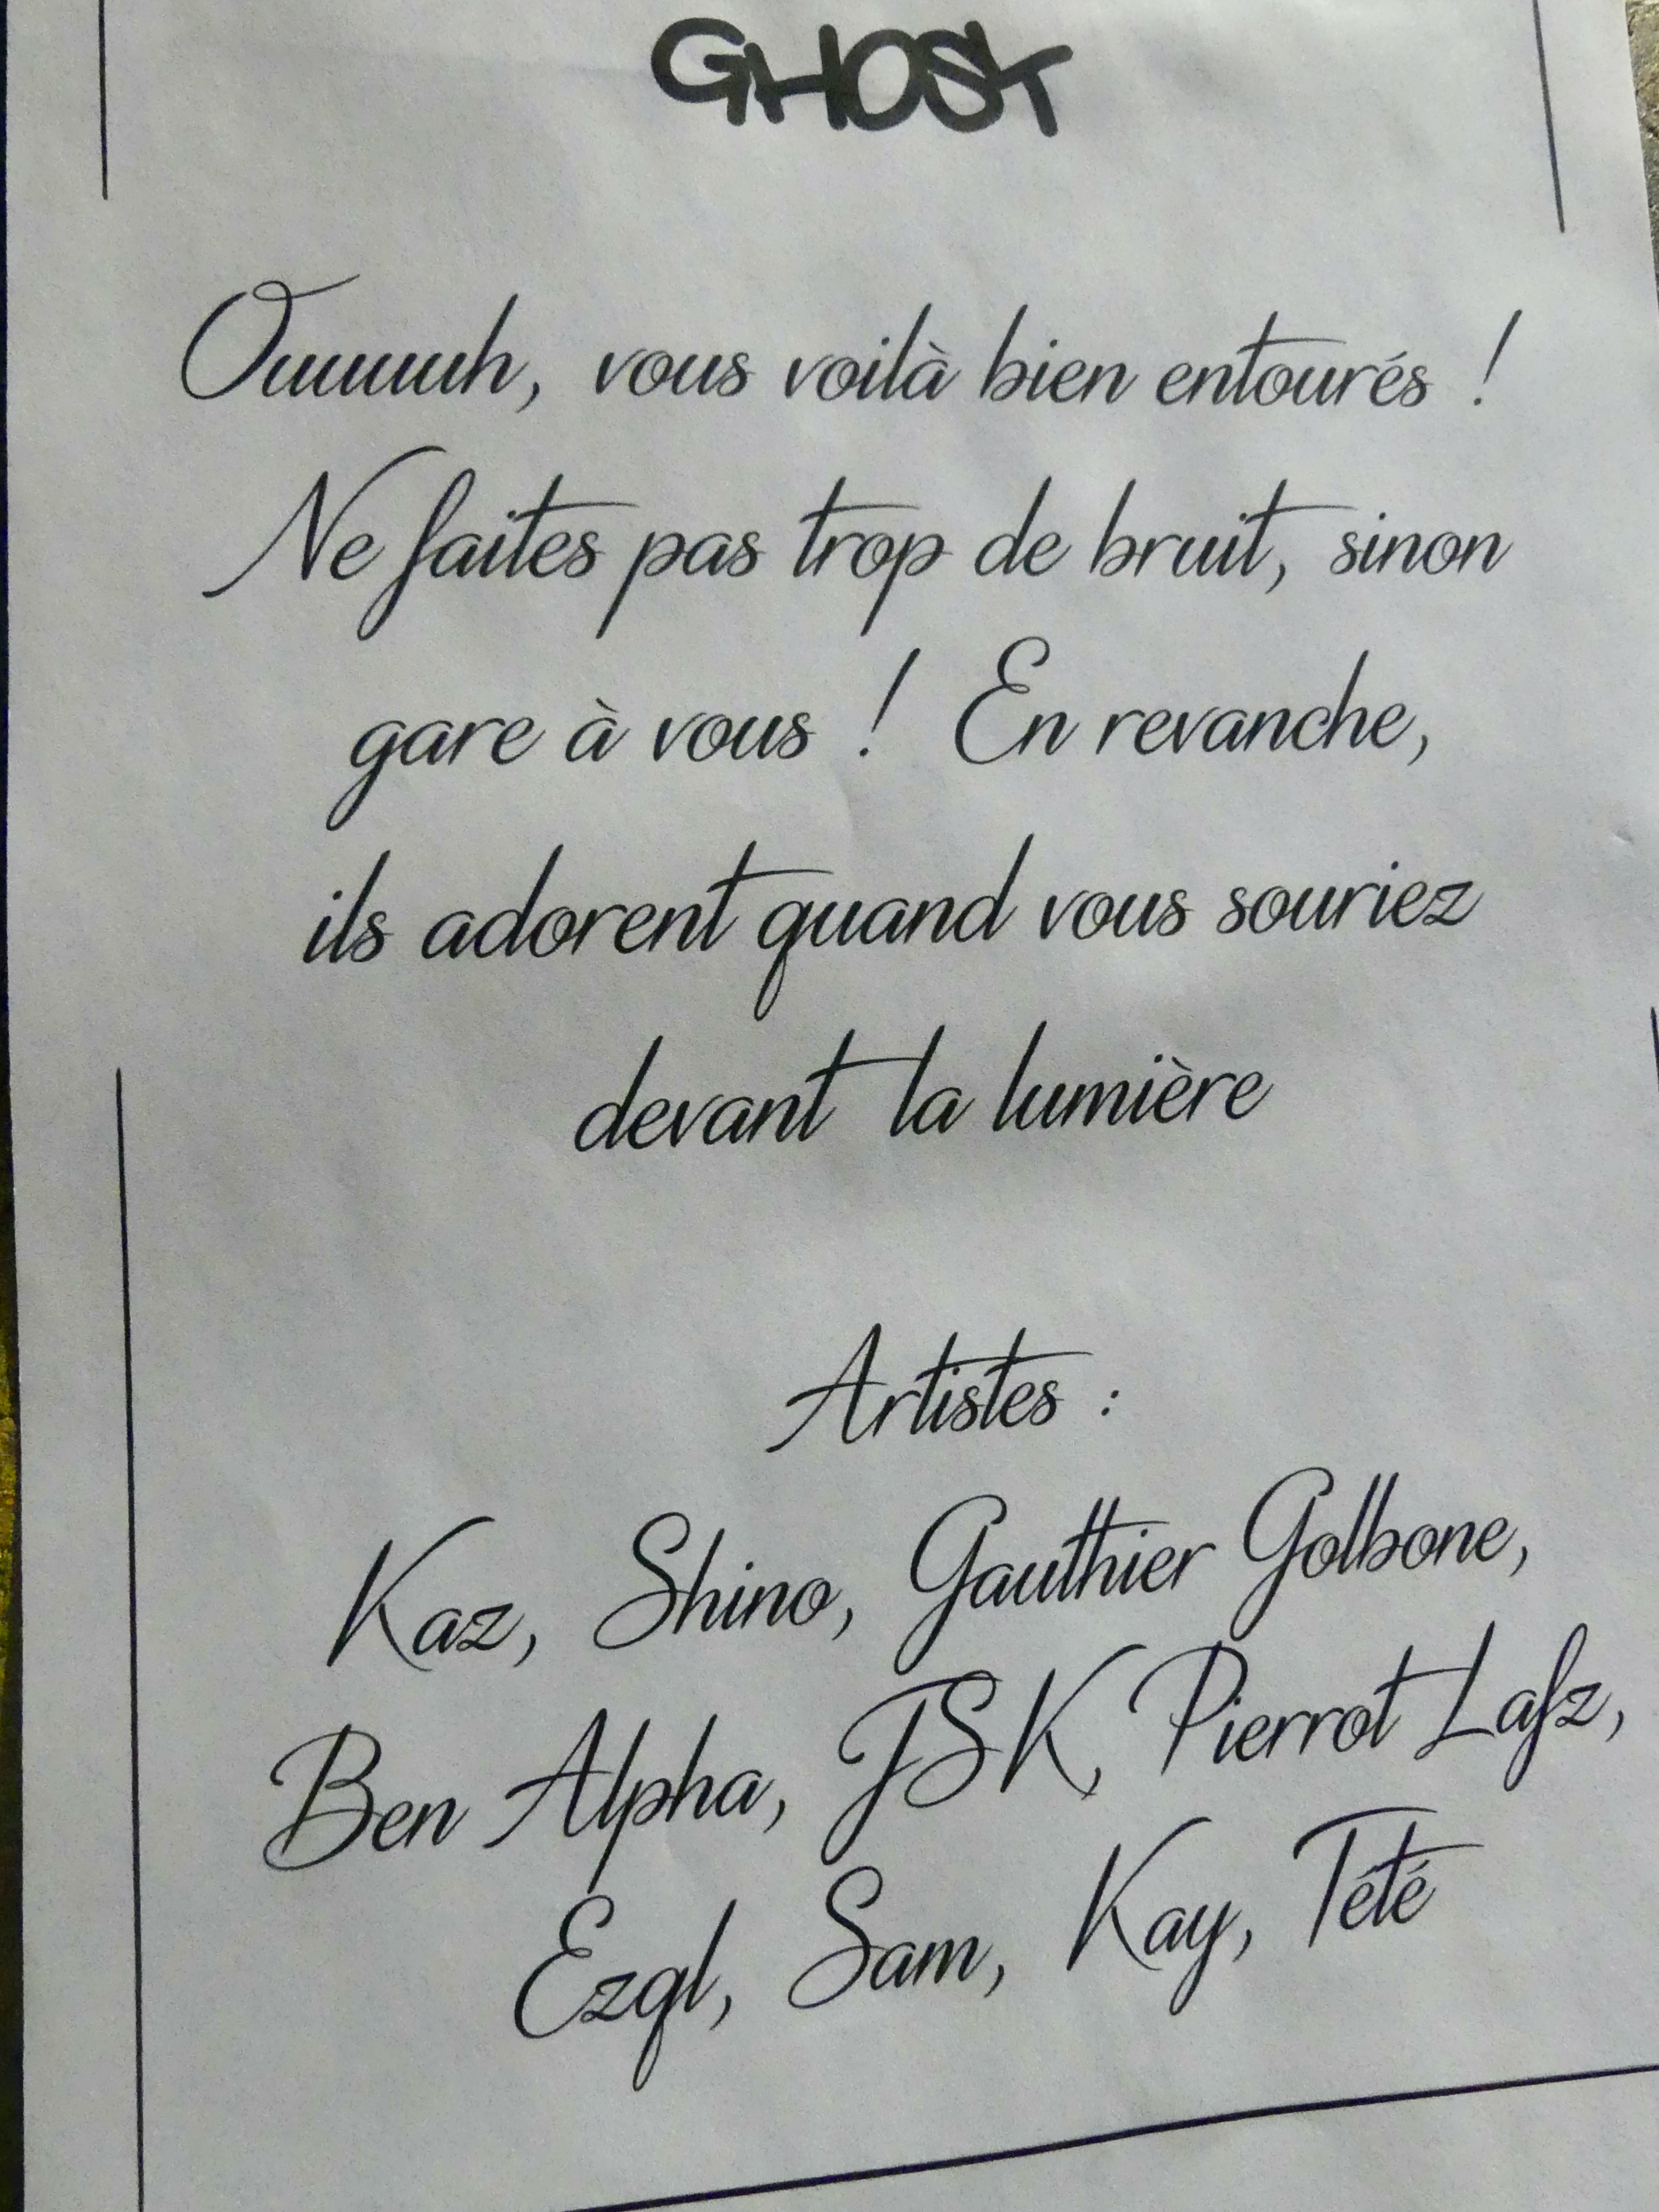 GHOST
Ouuuuuh, vous voilà bien entourés !
Ne faites pas trop de bruit, sinon
gare à vous ! En revanche,
ils adorent quand vous souriez
devant la lumière
Artistes :
Kaz, Shino, Gauthier Golbone,
Ben Alpha, JSK, Pierrot Lafz,
Ezql, Sam, Kay, Tété